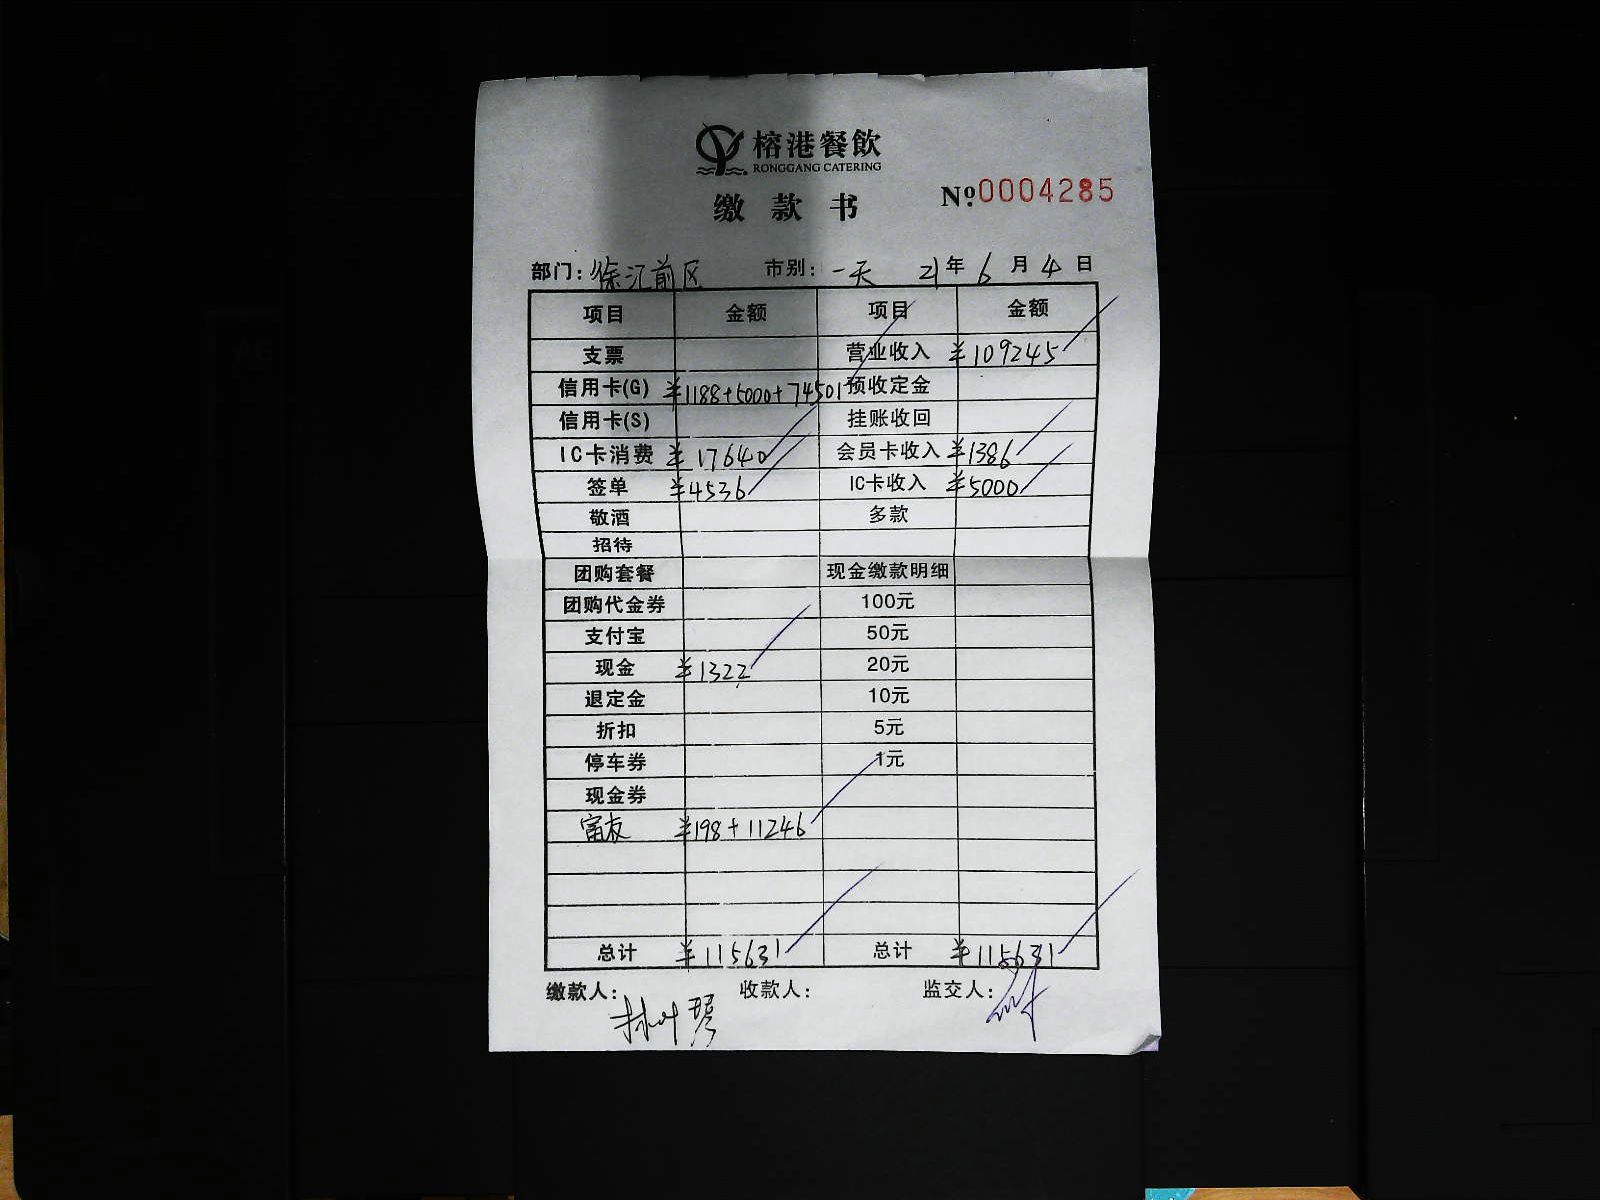 榕港餐飲
RONGGANG CATERING
缴款书
№0004285
部门:徐汇前区 市别:一天 21年6月4日
项目 金额 项目 金额
支票 营业收入 ¥109245
信用卡(G) ¥1188+5000+74501 预收定金
信用卡(S) 挂账收回
IC卡消费 ¥17640 会员卡收入 ¥1386
签单 ¥4536 IC卡收入 ¥5000
敬酒 多款
招待
团购套餐 现金缴款明细
团购代金券 100元
支付宝 50元
现金 ¥1322 20元
退定金 10元
折扣 5元
停车券 1元
现金券
富友 ¥198+11246
总计 ¥115631 总计 ¥115631
缴款人:林叶琴 收款人: 监交人: